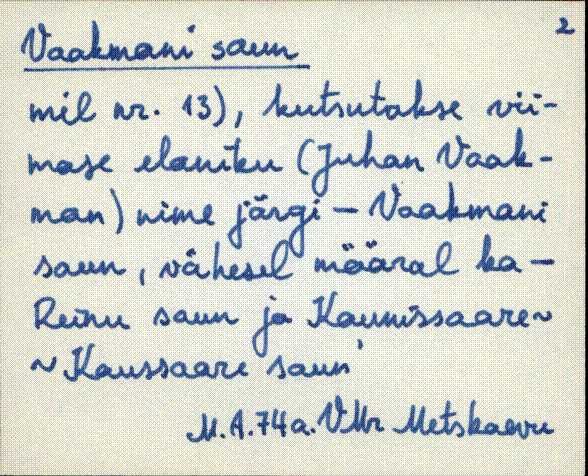 2
Vaakmani saun
mil nr. 13), kutsutakse vii-
mase elaniku (Juhan Vaak-
man) nime järgi – Vaakmani
saun, vähesel määral ka –
Reinu saun ja Kaunissaare~
~ Kaussaare saun
M.A.74a. VMr Metskaevu